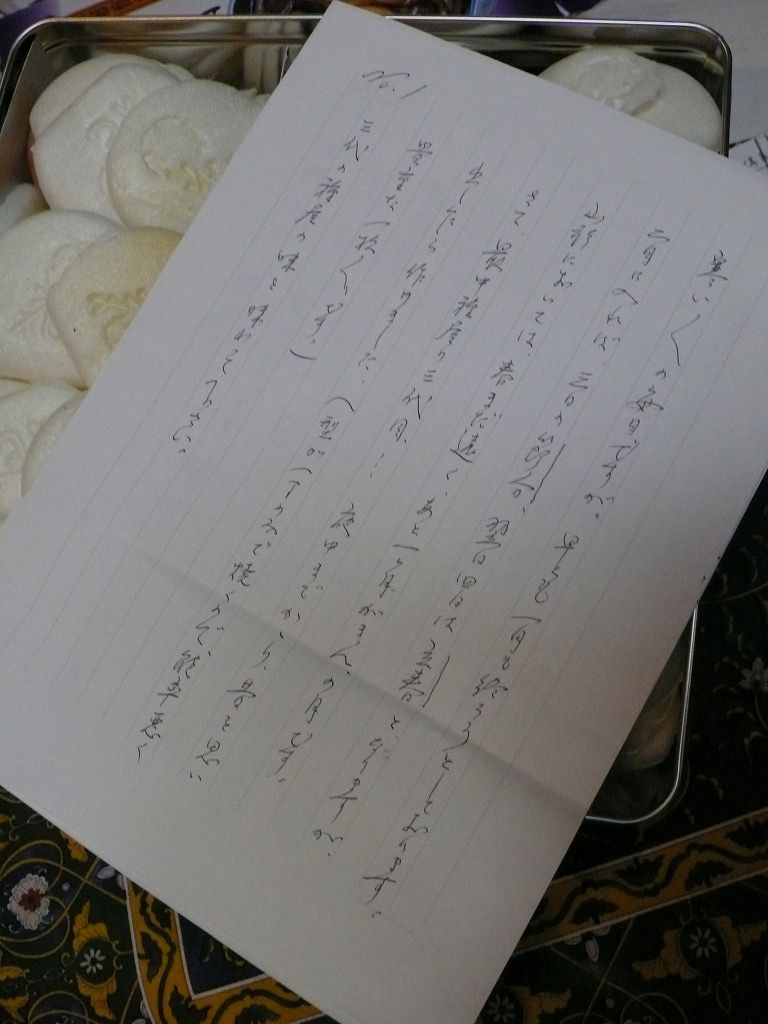 No.1
寒い〱の毎日ですが。早くも1月も終ろうとしております。
二月に入れば、三日の節分、翌四日は立春となりますが、
においては、春まだ遠く、あと1ヶ月がまんの月です。
さて、最中種屋の三代目… 夜中までかゝり、昔を思い
出しながら作りました。(型が1つなので焼くのに、能率悪く
です。)
三代の種屋の味を味わって下さい。